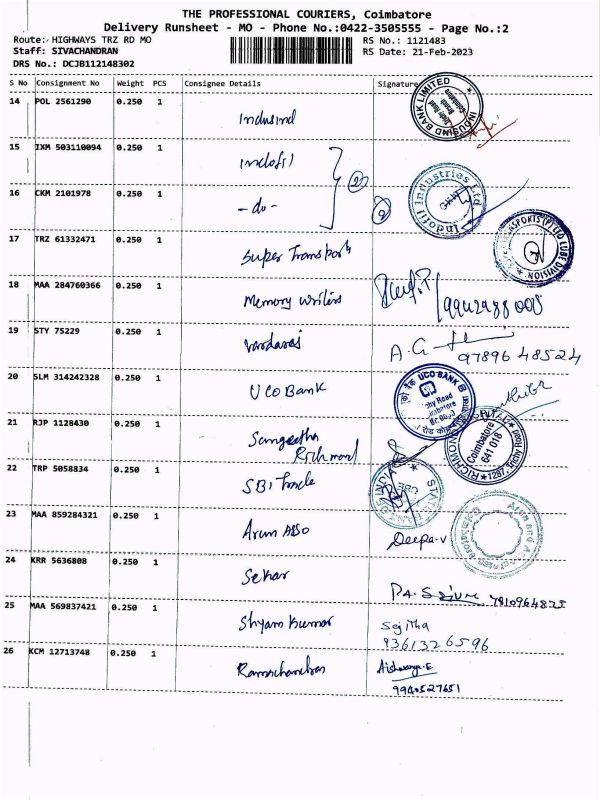 THE PROFESSIONAL COURIERS, Coimbatore
Delivery Runsheet - MO - Phone No.:0422-3505555 - Page No.:2
Route: HIGHWAYS TRZ RD MO RS No.: 1121483
Staff: SIVACHANDRAN RS Date: 21-Feb-2023
DRS No.: DCJB112148302
S No Consignment No Weight PCS Consignee Details Signature
14 POL 2561290 0.250 1 Indusind
INDUSIND BANK LIMITED
15 IXM 503110094 0.250 1 indofil
2
16 CKM 2101978 0.250 1 -do-
2
Indofil Industries Ltd
17 TRZ 61332471 0.250 1 Super Transports
LUBE DIVISION
18 MAA 284760366 0.250 1 Memory writers
19 STY 75229 0.250 1 Vardaraj
A. G
97896 48524
20 SLM 314242328 0.250 1 UCO Bank
UCO BANK
21 RJP 1128430 0.250 1 Sangeetha
Richmond
Coimbatore
641 018
22 TRP 5058834 0.250 1 SBI Trade
23 MAA 859284321 0.250 1 Arun ASSO
Deepa.v
24 KRR 5636808 0.250 1 Sekar
25 MAA 569837421 0.250 1 Shyam kumar
Sajitha
9361326596
26 KCM 12713748 0.250 1 Ramachandran
Aishwarya.E
9940527651